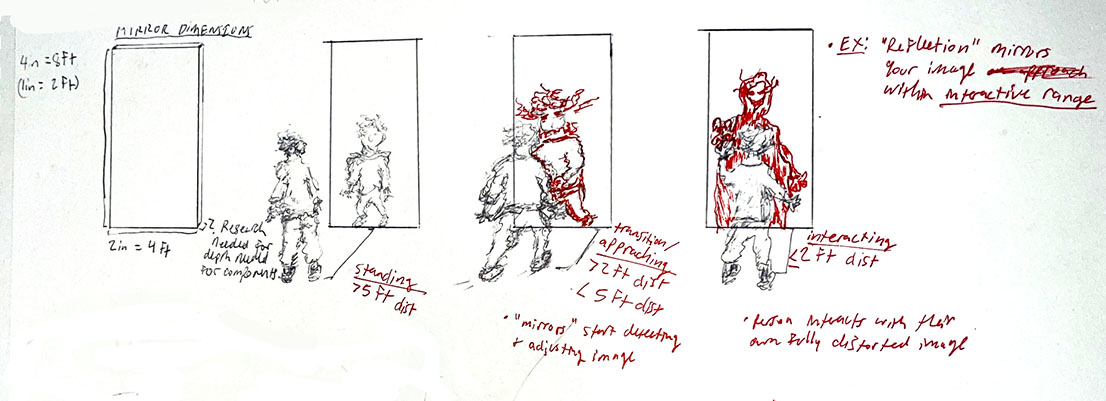 MIRROR DIMENSIONS
4in = 8ft
(1in = 2ft)
2in = 4ft
? Research
Needed for
depth needed
for components
standing
>5ft dist
transition/
approaching
>2ft dist
<5ft dist
• "mirrors" start detecting
+ adjusting image
interacting
<2ft dist
• Person interacts with their
own fully distorted image
• EX: "Reflection" mirrors
your image approach
within interactive range